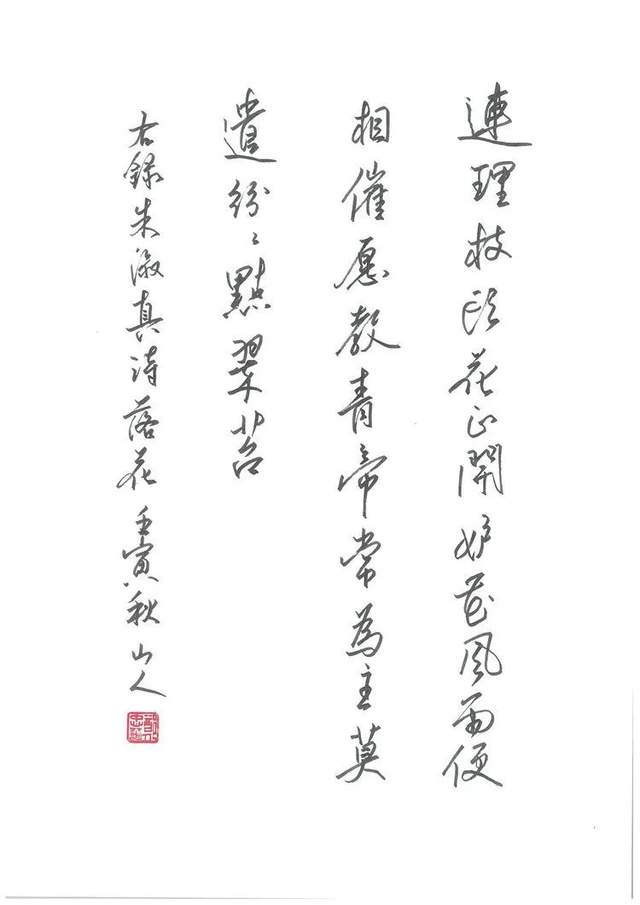 連理枝頭花正開妒花風雨便
相催愿教青帝常為主莫
遣紛〻點翠苔
右錄朱淑真詩落花壬寅秋山人